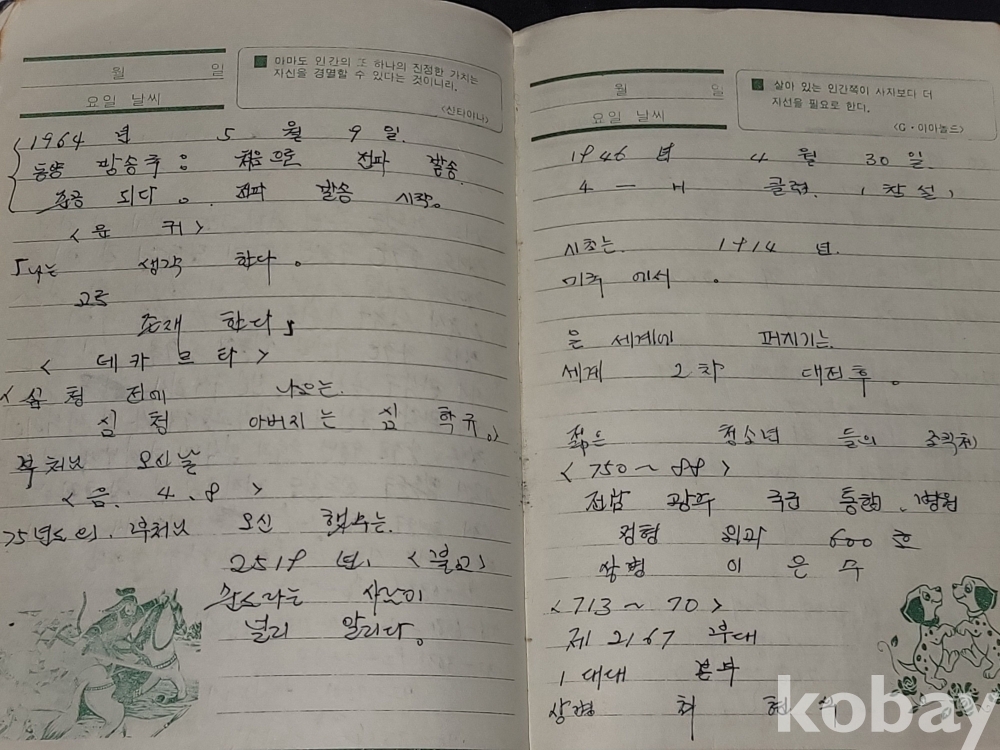 월 일
요일 날씨
아마도 인간의 또 하나의 진정한 가치는
자신을 경멸할 수 있다는 것이니라.
<신타이나>
1964 년 5 월 9 일.
동양 방송국 : 처음으로 전파 발송
성공 되다. 전파 발송 시작.
「나는 생각 한다.
고로
존재 한다」
< 데 카 르 타 >
< 심 청 전에 나오는.
심 청 아버지는 심 학규.>
부처님 오신날
<음. 4. 8 >
75년도의. 부처님 오신 햇수는.
2519 년. <불교>
널리 알리다.
월 일
요일 날씨
살아 있는 인간쪽이 사자보다 더
지선을 필요로 한다.
<G·이아놀드>
1946 년 4 월 30 일.
4 - H 클럽. (창설)
시초는. 1914 년.
미국 에서.
은 세계에 퍼지기는.
세계 2차 대전후.
젊은 청소년 들의 조직체
<750~88>
전남 광주 국군 통합. 병원
정형 외과 600 호
상병 이 은 우
<713~70>
제 2167 부대
1 대대 본부
상병 최 현
kobay